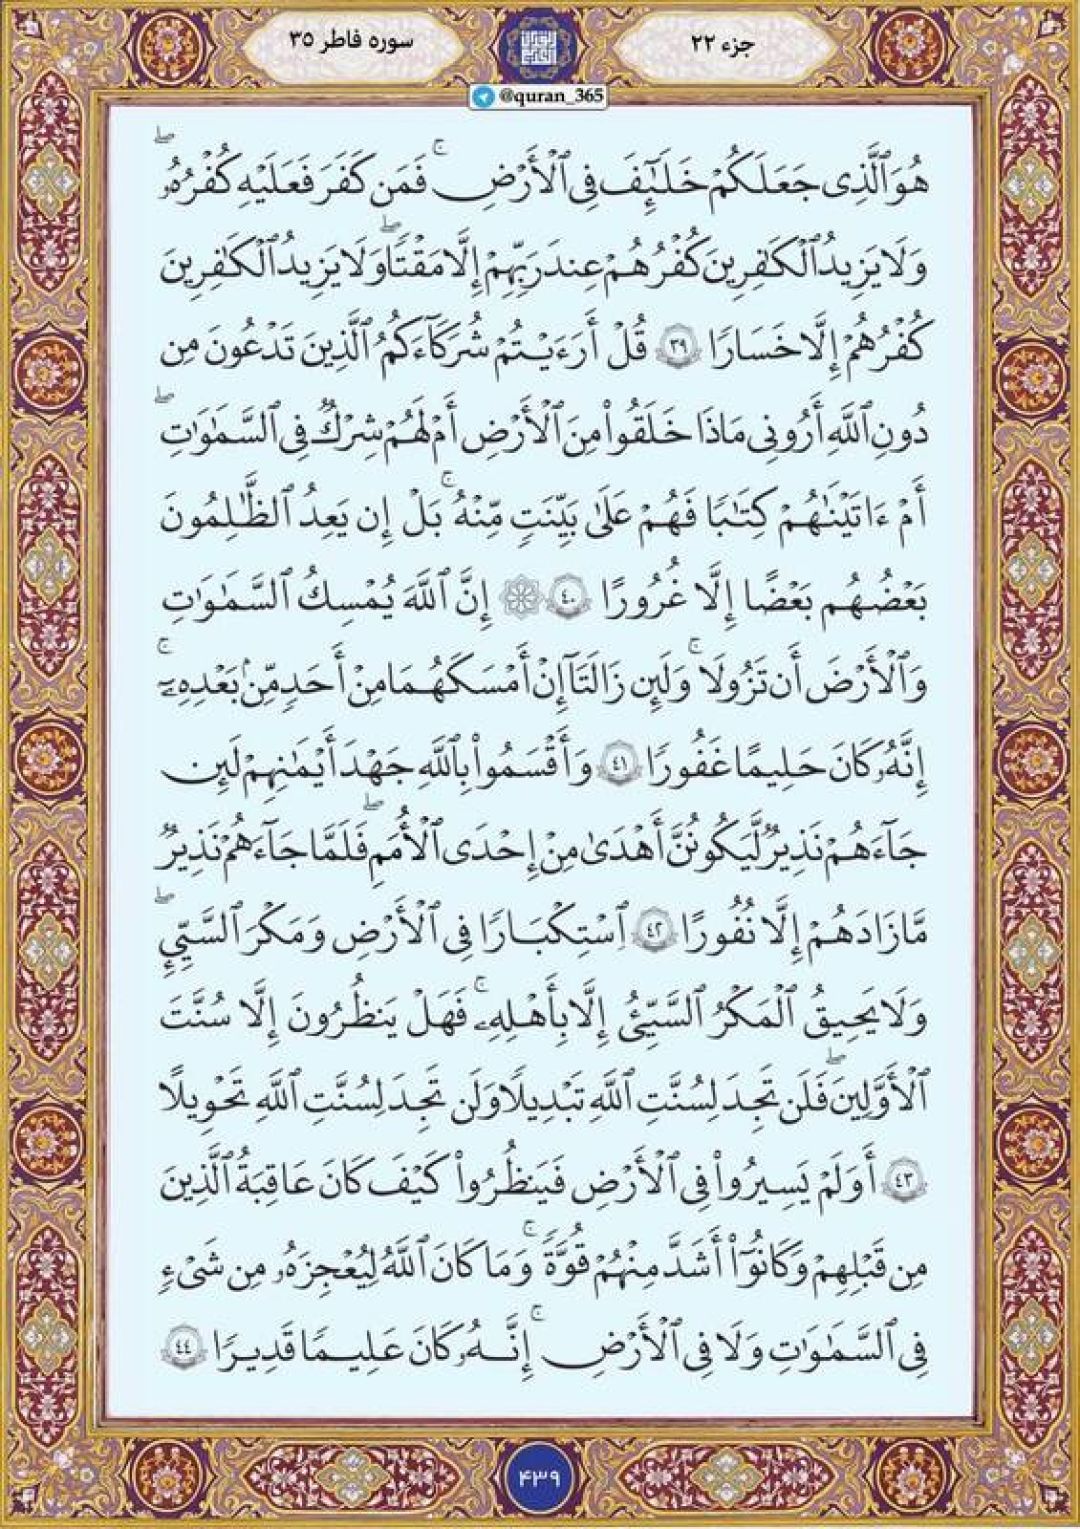 جزء ۲۲
سوره فاطر ۳۵
@quran_365
هُوَ ٱلَّذِى جَعَلَكُمْ خَلَٰٓئِفَ فِى ٱلْأَرْضِ ۚ فَمَن كَفَرَ فَعَلَيْهِ كُفْرُهُۥ ۖ
وَلَا يَزِيدُ ٱلْكَٰفِرِينَ كُفْرُهُمْ عِندَ رَبِّهِمْ إِلَّا مَقْتًا ۖ وَلَا يَزِيدُ ٱلْكَٰفِرِينَ
كُفْرُهُمْ إِلَّا خَسَارًا ٣٩ قُلْ أَرَءَيْتُمْ شُرَكَآءَكُمُ ٱلَّذِينَ تَدْعُونَ مِن
دُونِ ٱللَّهِ أَرُونِى مَاذَا خَلَقُوا۟ مِنَ ٱلْأَرْضِ أَمْ لَهُمْ شِرْكٌ فِى ٱلسَّمَٰوَٰتِ ۖ
أَمْ ءَاتَيْنَٰهُمْ كِتَٰبًا فَهُمْ عَلَىٰ بَيِّنَتٍ مِّنْهُ ۚ بَلْ إِن يَعِدُ ٱلظَّٰلِمُونَ
بَعْضُهُم بَعْضًا إِلَّا غُرُورًا ٤٠ ۞ إِنَّ ٱللَّهَ يُمْسِكُ ٱلسَّمَٰوَٰتِ
وَٱلْأَرْضَ أَن تَزُولَا ۚ وَلَئِن زَالَتَآ إِنْ أَمْسَكَهُمَا مِنْ أَحَدٍ مِّنۢ بَعْدِهِۦٓ ۚ
إِنَّهُۥ كَانَ حَلِيمًا غَفُورًا ٤١ وَأَقْسَمُوا۟ بِٱللَّهِ جَهْدَ أَيْمَٰنِهِمْ لَئِن
جَآءَهُمْ نَذِيرٌ لَّيَكُونُنَّ أَهْدَىٰ مِنْ إِحْدَى ٱلْأُمَمِ ۖ فَلَمَّا جَآءَهُمْ نَذِيرٌ
مَّا زَادَهُمْ إِلَّا نُفُورًا ٤٢ ٱسْتِكْبَارًا فِى ٱلْأَرْضِ وَمَكْرَ ٱلسَّيِّئِ ۖ
وَلَا يَحِيقُ ٱلْمَكْرُ ٱلسَّيِّئُ إِلَّا بِأَهْلِهِۦ ۚ فَهَلْ يَنظُرُونَ إِلَّا سُنَّتَ
ٱلْأَوَّلِينَ ۖ فَلَن تَجِدَ لِسُنَّتِ ٱللَّهِ تَبْدِيلًا وَلَن تَجِدَ لِسُنَّتِ ٱللَّهِ تَحْوِيلًا
٤٣ أَوَلَمْ يَسِيرُوا۟ فِى ٱلْأَرْضِ فَيَنظُرُوا۟ كَيْفَ كَانَ عَٰقِبَةُ ٱلَّذِينَ
مِن قَبْلِهِمْ وَكَانُوٓا۟ أَشَدَّ مِنْهُمْ قُوَّةً ۚ وَمَا كَانَ ٱللَّهُ لِيُعْجِزَهُۥ مِن شَىْءٍ
فِى ٱلسَّمَٰوَٰتِ وَلَا فِى ٱلْأَرْضِ ۚ إِنَّهُۥ كَانَ عَلِيمًا قَدِيرًا ٤٤
۴۳۹